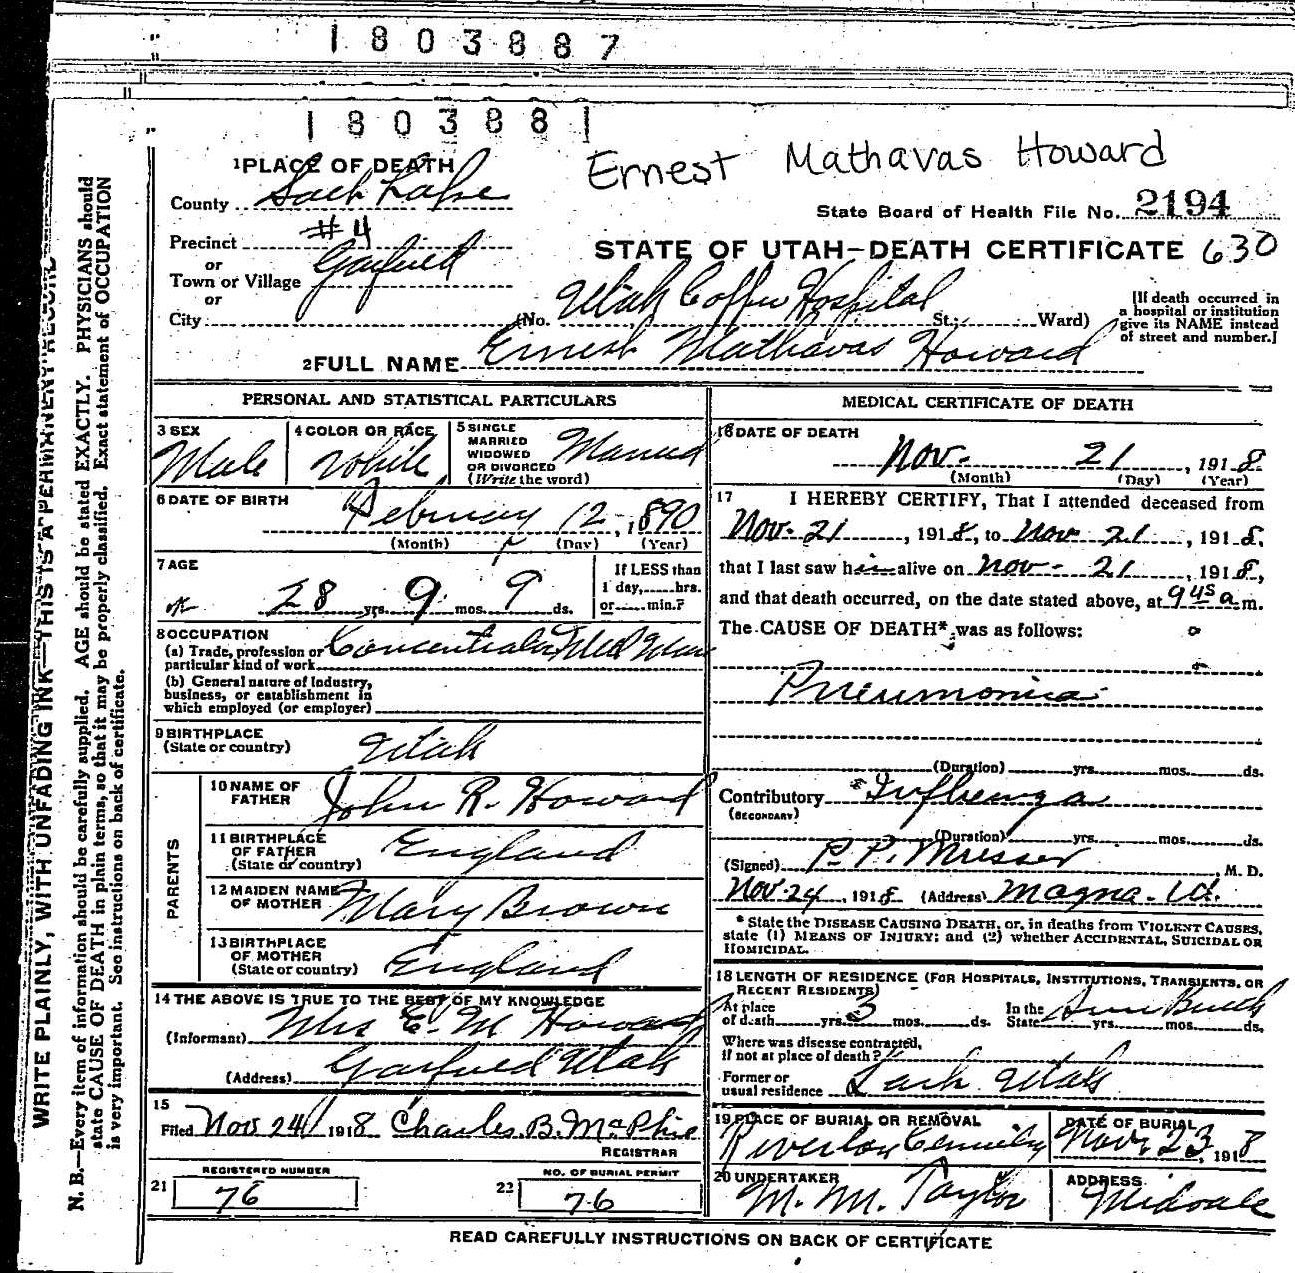 1803887
1803881
Ernest Mathavas Howard
1 PLACE OF DEATH
County
State Board of Health File No. 2194
Precinct #4
STATE OF UTAH—DEATH CERTIFICATE 630
or
Town or Village Garfield
or
City (No. Utah Hospital St.; Ward)
[If death occurred in
a hospital or institution
give its NAME instead
of street and number.]
2 FULL NAME Ernest Mathavas Howard
PERSONAL AND STATISTICAL PARTICULARS
3 SEX
Male
4 COLOR OR RACE
White
5 SINGLE
MARRIED
WIDOWED
OR DIVORCED
(Write the word)
Married
6 DATE OF BIRTH
February 12, 1890
(Month) (Day) (Year)
7 AGE
28 yrs. 9 mos. 9 ds.
If LESS than
1 day, hrs.
or min.?
8 OCCUPATION
(a) Trade, profession or
particular kind of work
(b) General nature of industry,
business, or establishment in
which employed (or employer)
9 BIRTHPLACE
(State or country)
Utah
PARENTS
10 NAME OF
FATHER
John R. Howard
11 BIRTHPLACE
OF FATHER
(State or country)
England
12 MAIDEN NAME
OF MOTHER
Mary Brown
13 BIRTHPLACE
OF MOTHER
(State or country)
England
14 THE ABOVE IS TRUE TO THE BEST OF MY KNOWLEDGE
(Informant) Mrs E. M Howard
(Address) Garfield Utah
15
Filed Nov 24 1918 Charles B. McPhie
REGISTRAR
REGISTERED NUMBER
21 76
NO. OF BURIAL PERMIT
22 76
MEDICAL CERTIFICATE OF DEATH
16 DATE OF DEATH
Nov. 21, 1918
(Month) (Day) (Year)
17 I HEREBY CERTIFY, That I attended deceased from
Nov. 21, 1918, to Nov 21, 1918.
that I last saw him alive on Nov. 21, 1918,
and that death occurred, on the date stated above, at 9 45 a m.
The CAUSE OF DEATH* was as follows:
Pneumonia
(Duration) yrs. mos. ds.
Contributory Influenza
(SECONDARY)
(Duration) yrs. mos. ds.
(Signed) P. P. Musser, M. D.
Nov 24, 1918 (Address) Magna. Ut.
* State the DISEASE CAUSING DEATH, or, in deaths from VIOLENT CAUSES,
state (1) MEANS OF INJURY; and (2) whether ACCIDENTAL, SUICIDAL OR
HOMICIDAL.
18 LENGTH OF RESIDENCE (FOR HOSPITALS, INSTITUTIONS, TRANSIENTS, OR
RECENT RESIDENTS)
At place
of death yrs. 3 mos. ds.
In the
State yrs. mos. ds.
Where was disease contracted,
if not at place of death?
Former or
usual residence Lark Utah
19 PLACE OF BURIAL OR REMOVAL
Riverton
DATE OF BURIAL
Nov. 23, 1918
20 UNDERTAKER
M. M. Taylor
ADDRESS
Midvale
READ CAREFULLY INSTRUCTIONS ON BACK OF CERTIFICATE
WRITE PLAINLY, WITH UNFADING INK—THIS IS A PERMANENT RECORD
N. B.—Every item of information should be carefully supplied. AGE should be stated EXACTLY. PHYSICIANS should
state CAUSE OF DEATH in plain terms, so that it may be properly classified. Exact statement of OCCUPATION
is very important. See instructions on back of certificate.